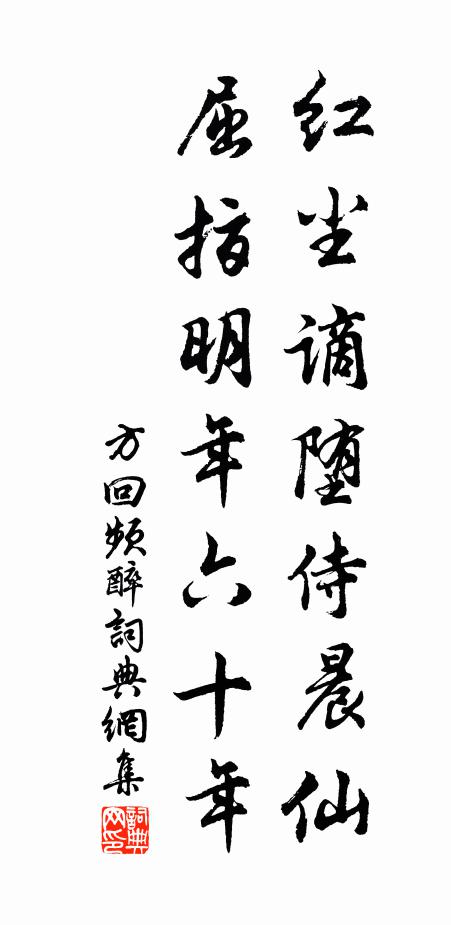 红尘谪堕侍晨仙
屈指明年六十年
方回频醉詞典網集
詞典
网印